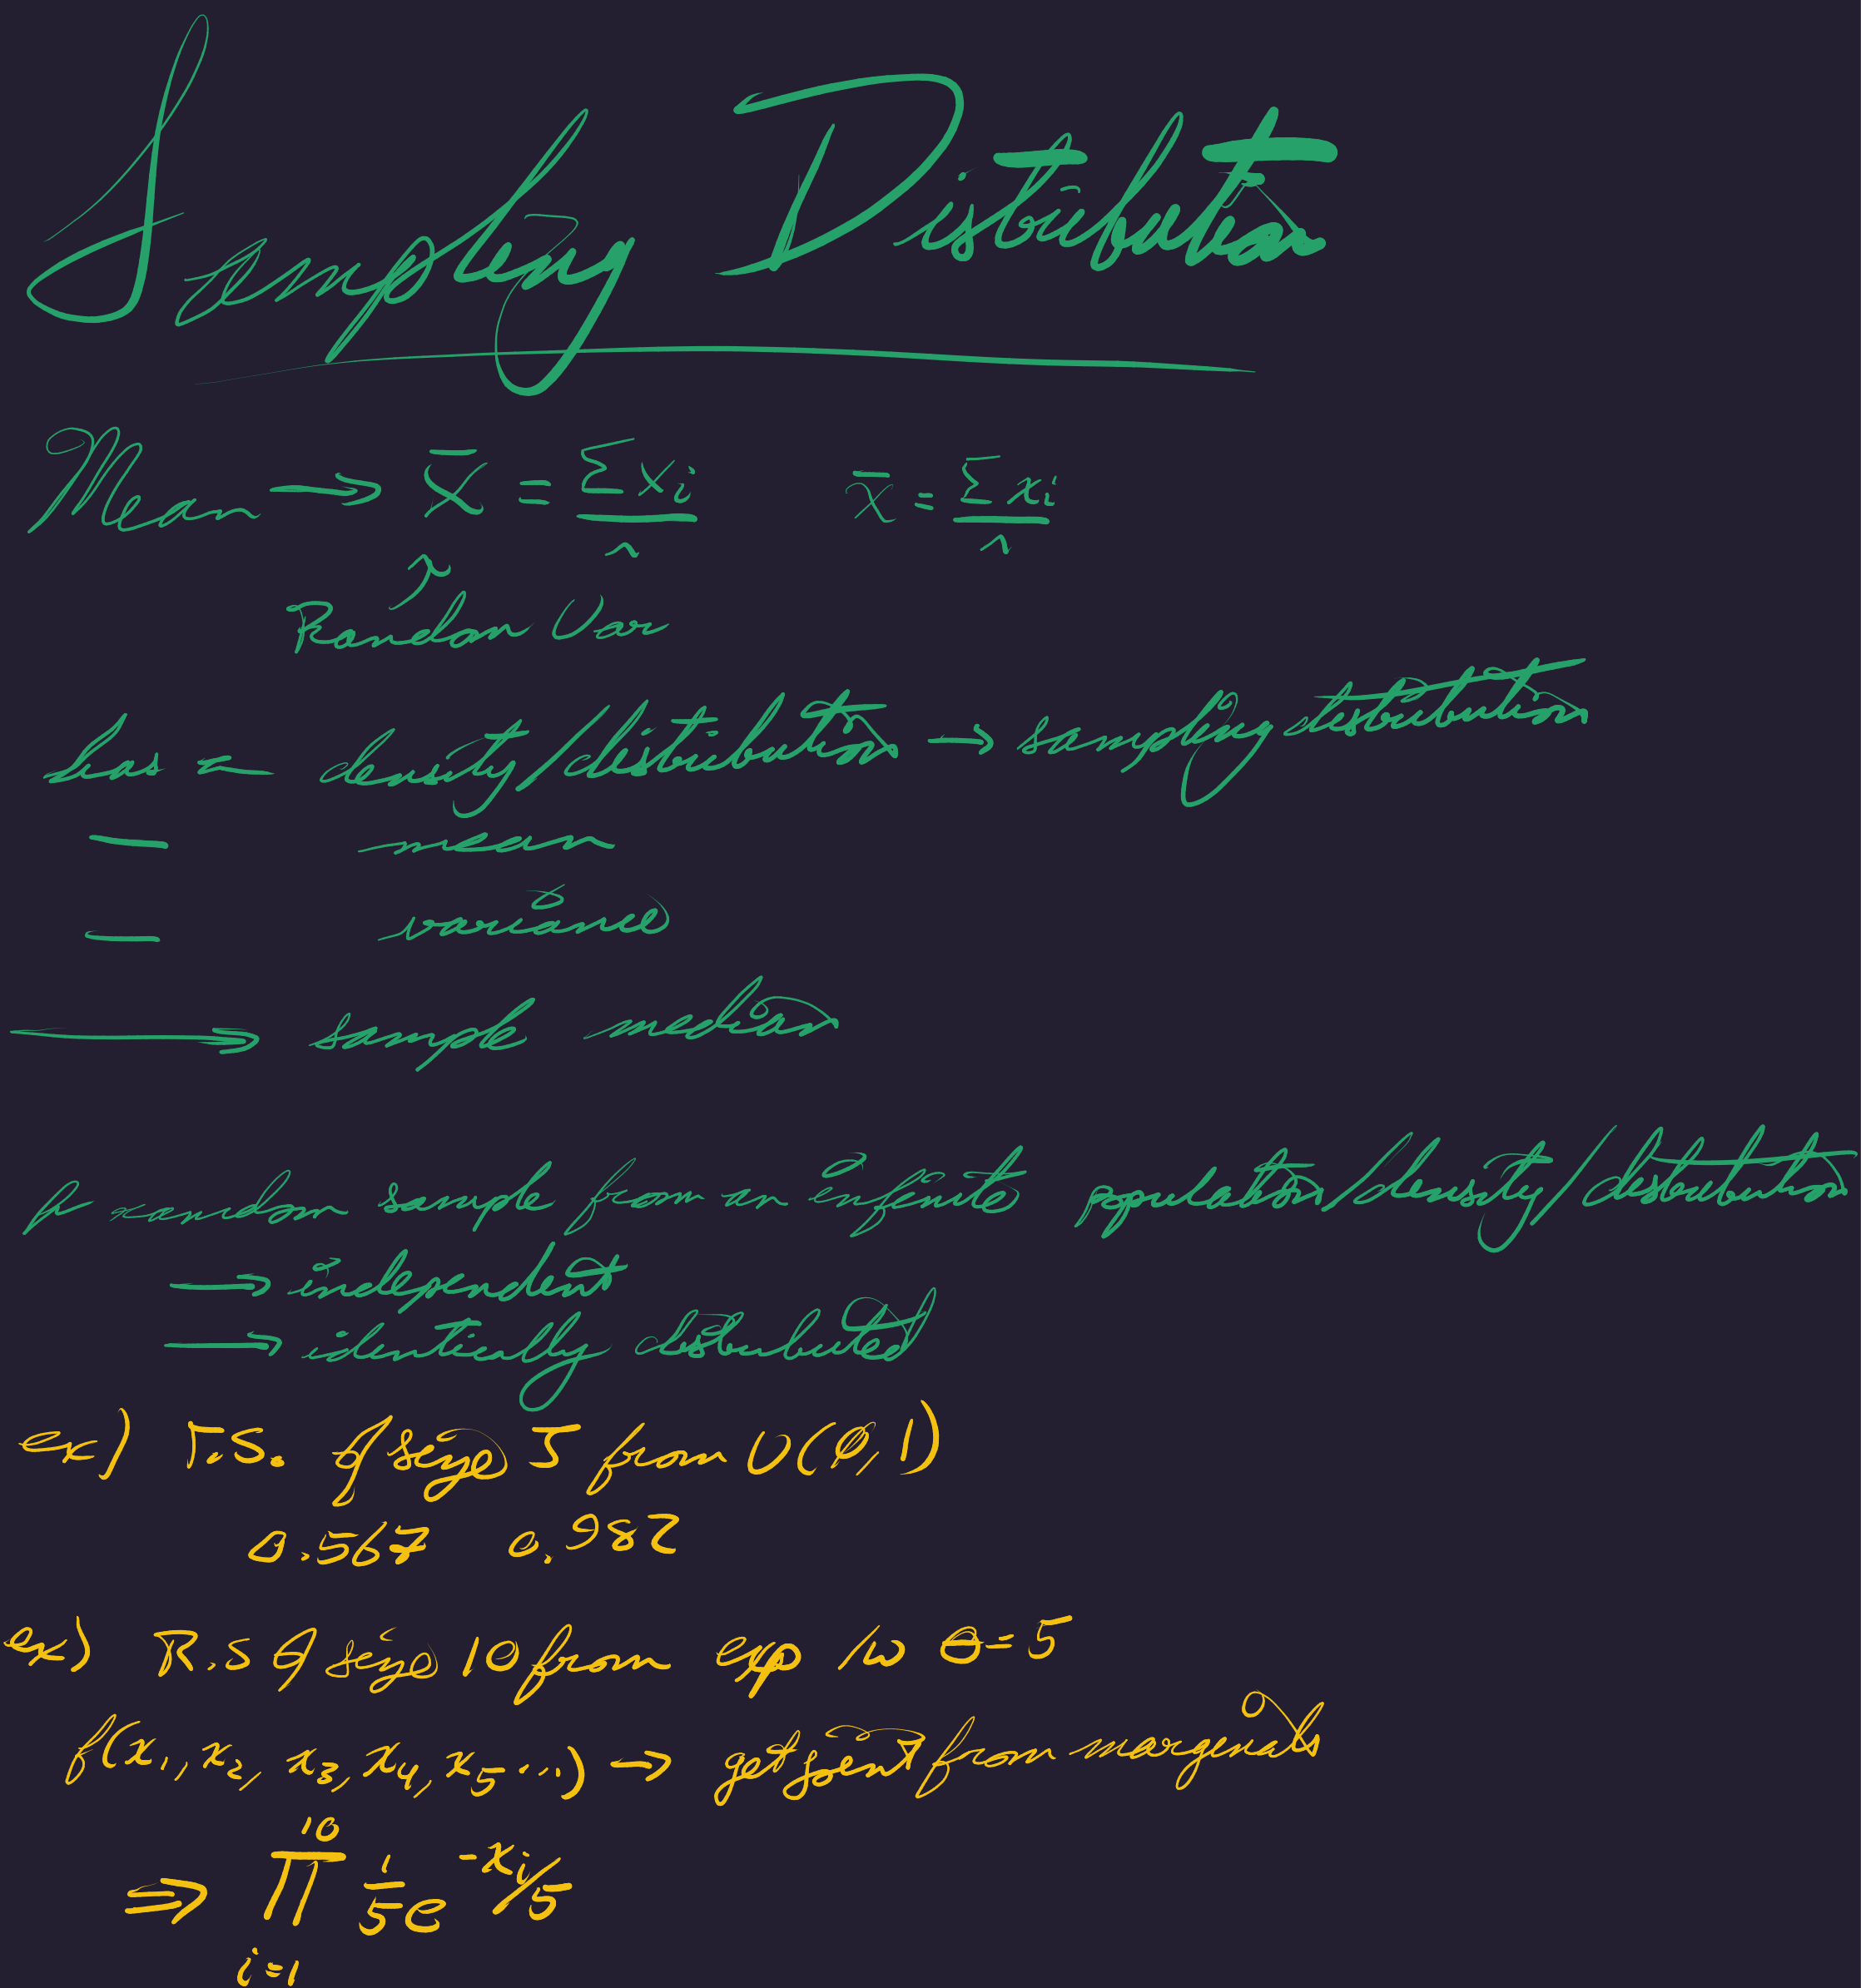 Sampling Distribution
Mean → X̄ = ΣXi / n    x̄ = Σxi / n
Random Var
has – density/distribution → sampling distribution
– mean
– variance
→ sample median
A random sample from an infinite population/density/distribution
→ independent
→ identically distributed
ex) r.s. of size 5 from U(0,1)
0.567 0.982
ex) R.S of size 10 from exp w θ=5
f(x1, x2, x3, x4, x5...) → get joint from marginals
⇒ ∏_{i=1}^{10} 1/5 e^{-xi/5}